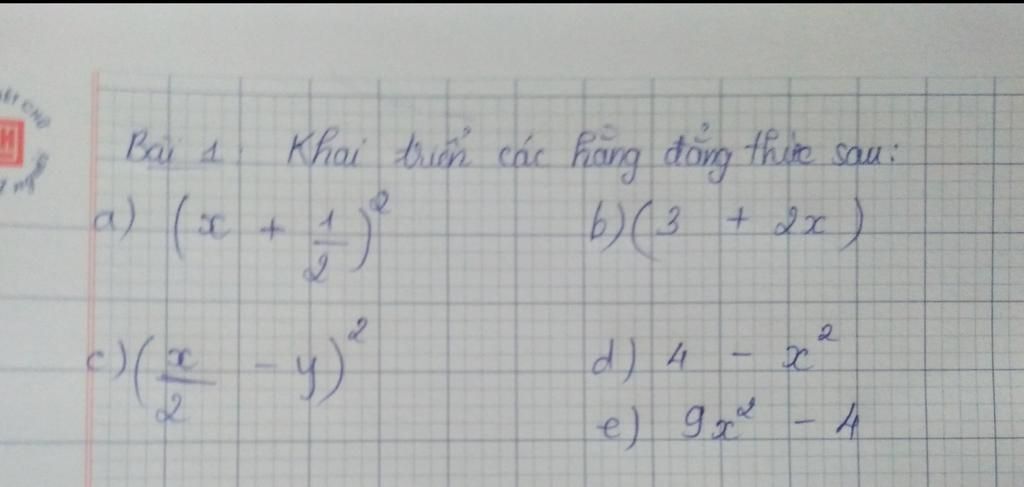 Bài 1: Khai triển các hằng đẳng thức sau:
a) (x + 1/2)² b) (3 + 2x)
c) (x/2 - y)² d) 4 - x²
e) 9x² - 4